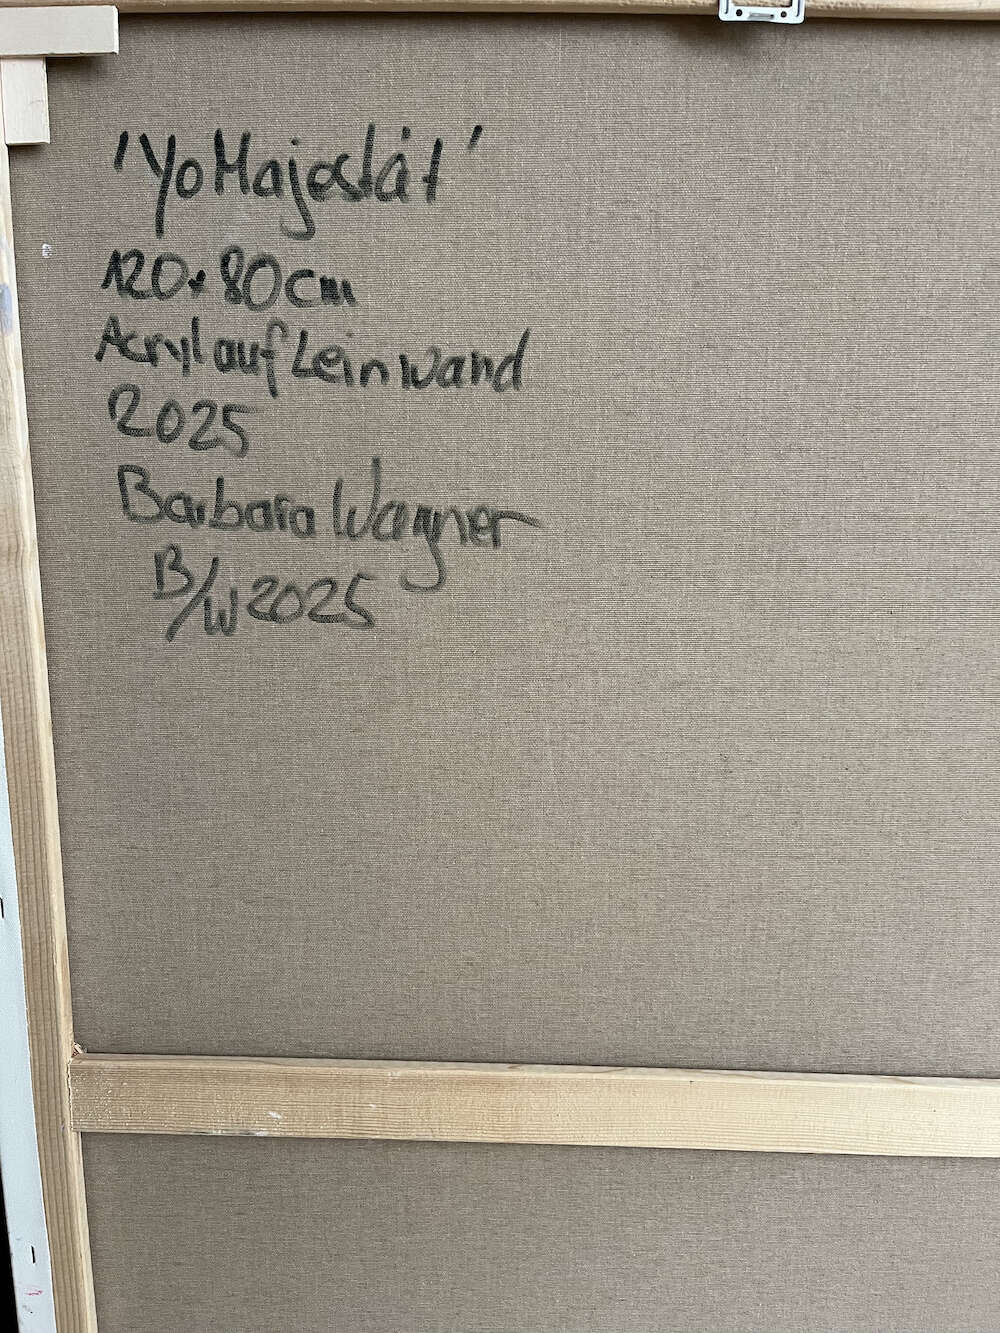 'Yo Majestät'
120x80cm
Acryl auf Leinwand
2025
Barbara Wagner
B/W 2025